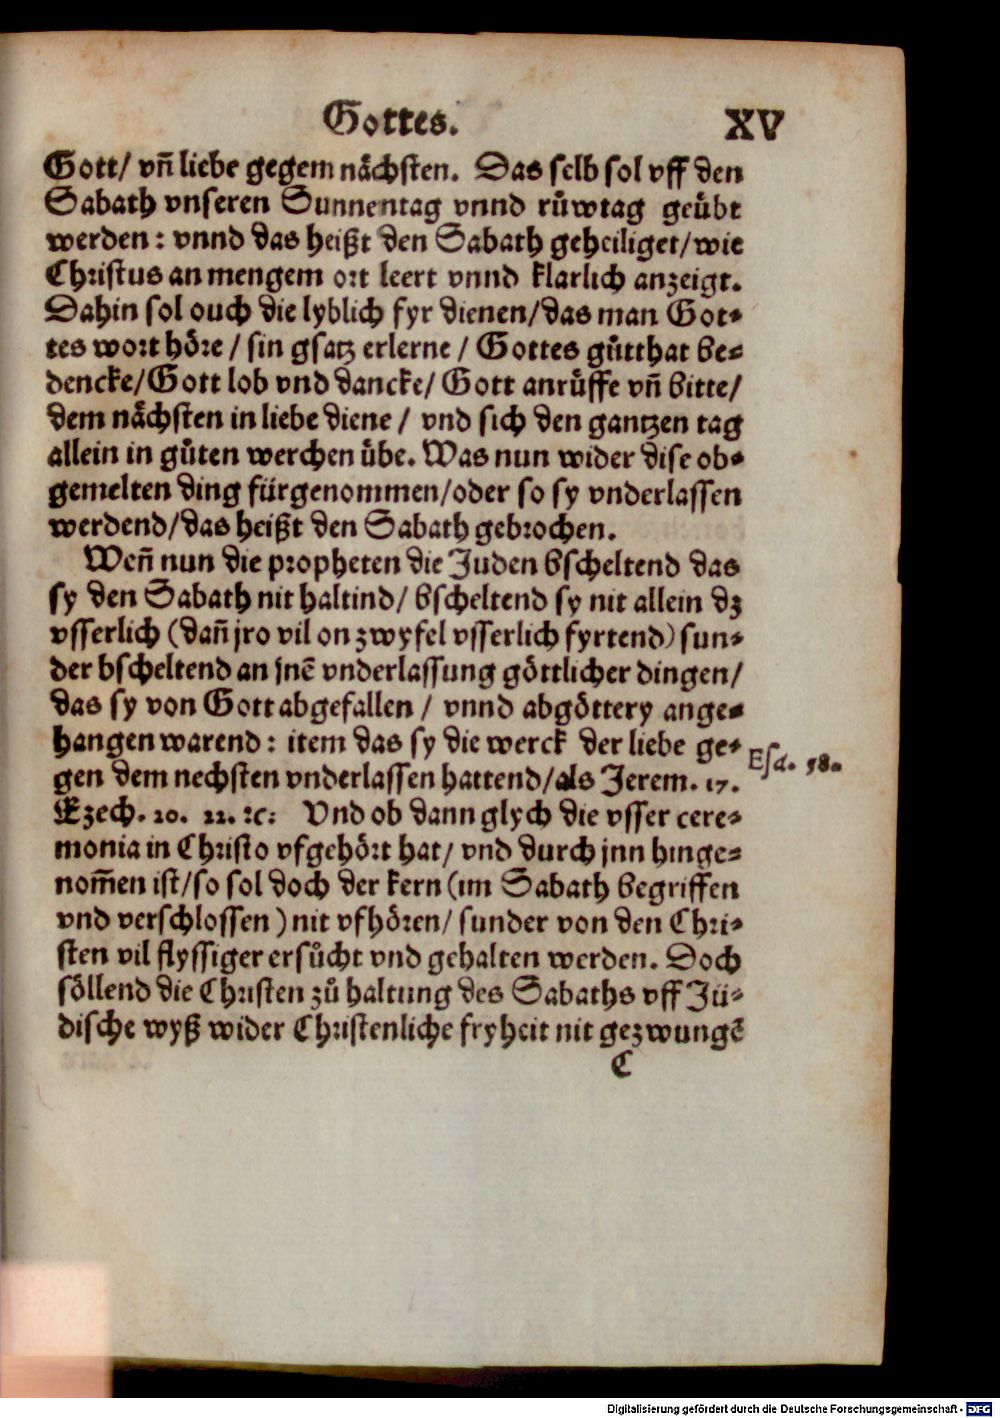 Gottes. XV
Gott/ vñ liebe gegem nächsten. Das selb sol vff den
Sabath vnseren Sunnentag vnnd růwtag geübt
werden: vnnd das heißt den Sabath geheiliget/wie
Christus an mengem ort leert vnnd klarlich anzeigt.
Dahin sol ouch die lyblich fyr dienen/das man Got⸗
tes wort höre / sin gsatz erlerne / Gottes gůtthat be⸗
dencke/Gott lob vnd dancke/ Gott anrůffe vñ bitte/
dem nächsten in liebe diene / vnd sich den gantzen tag
allein in gůten werchen übe. Was nun wider dise ob⸗
gemelten ding fürgenommen/oder so sy vnderlassen
werdend/das heißt den Sabath gebrochen.
Weñ nun die propheten die Juden bscheltend das
sy den Sabath nit haltind/ bscheltend sy nit allein dz
vsserlich (dañ jro vil on zwyfel vsserlich fyrtend) sun⸗
der bscheltend an jnẽ vnderlassung göttlicher dingen/
das sy von Gott abgefallen / vnnd abgöttery ange⸗
hangen warend: item das sy die werck der liebe ge⸗
gen dem nechsten vnderlassen hattend/als Jerem. 17.
Esa. 58.
Ezech. 20. 22. ꝛc: Vnd ob dann glych die vsser cere⸗
monia in Christo vfgehört hat/ vnd durch jnn hinge⸗
nom̃en ist/so sol doch der kern (im Sabath begriffen
vnd verschlossen) nit vfhören/ sunder von den Chri⸗
sten vil flyssiger ersůcht vnd gehalten werden. Doch
söllend die Christen zů haltung des Sabaths vff Jü⸗
dische wyß wider Christenliche fryheit nit gezwungẽ
C
Digitalisierung gefördert durch die Deutsche Forschungsgemeinschaft - DFG